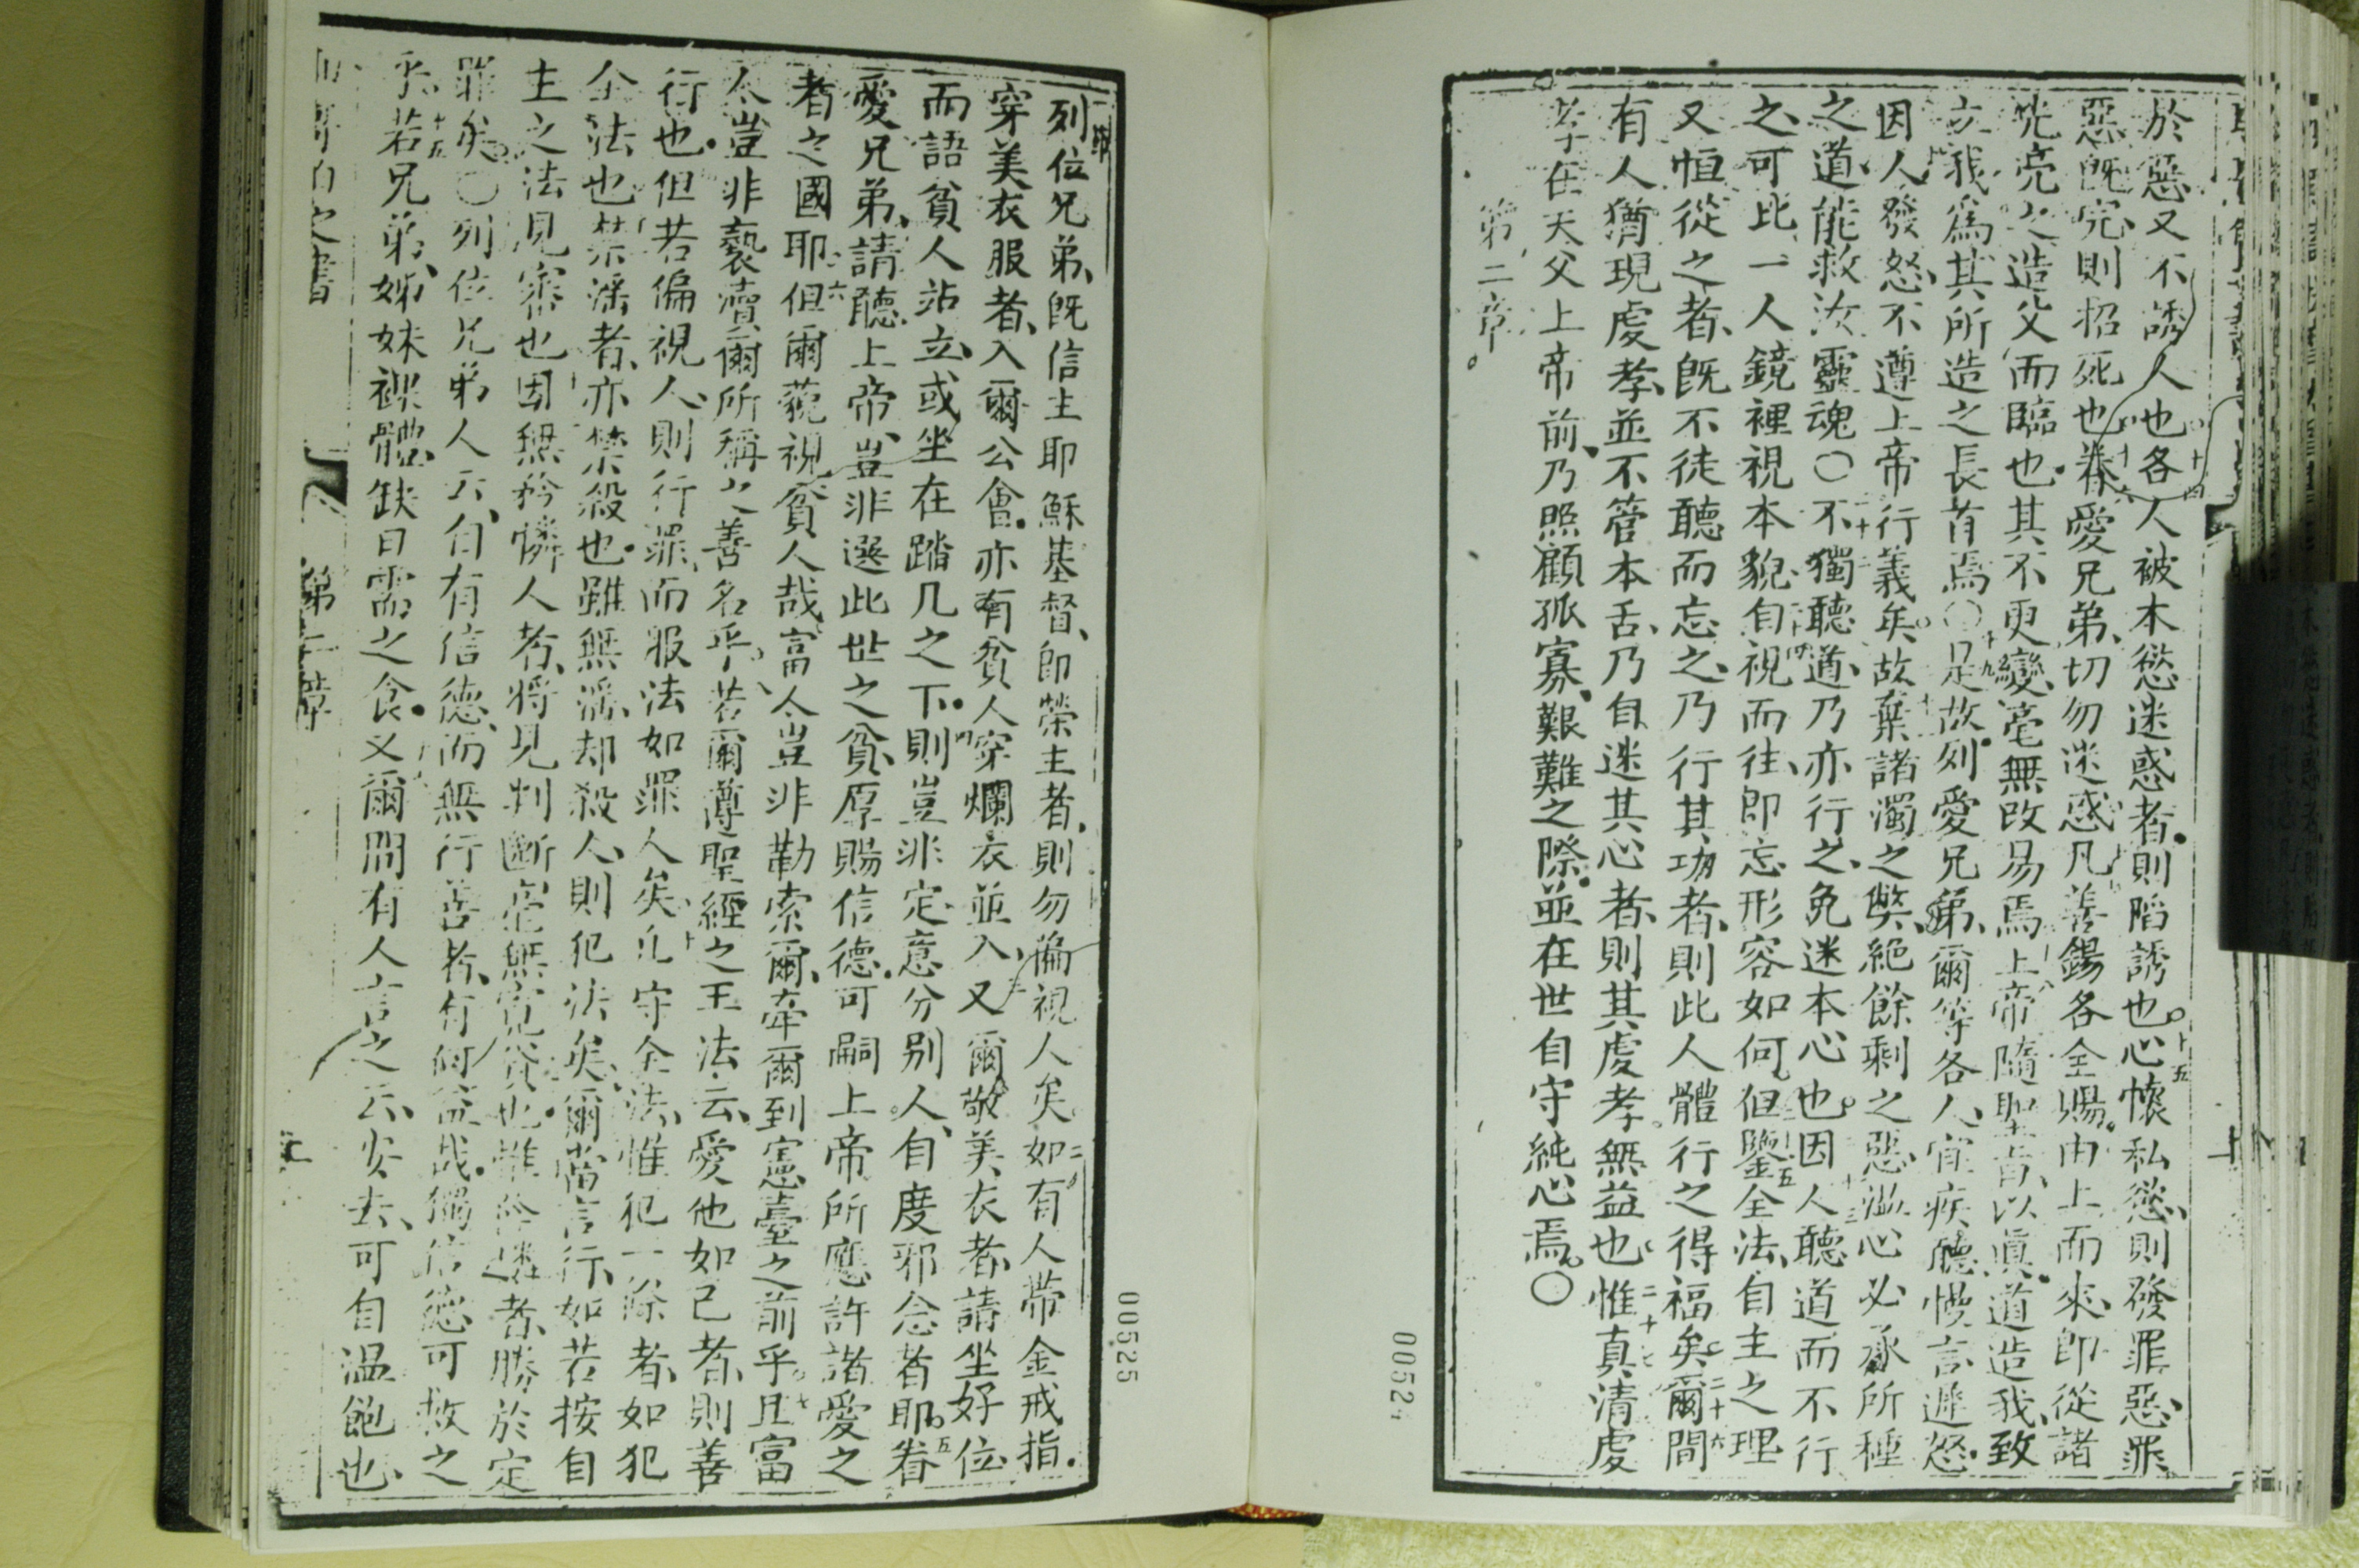 於惡又不誘人也各人被本慾迷惑者則陷誘也心懷私慾則發罪惡罪
惡既完則招死也眷愛兄弟切勿迷惑凡善錫各全賜由上而來即從諸
光亮之造父而臨也其不更變毫無改易焉上帝隨聖旨以眞道造我致
立我爲其所造之長首焉〇是故列愛兄弟爾等各人宜疾聽慢言遲怒
因人發怒不遵上帝行義矣故棄諸濁之弊絕餘剩之惡溫心必承所種
之道能救汝靈魂〇不獨聽道乃亦行之免迷本心也因人聽道而不行
之可比一人鏡裡視本貌自視而往即忘形容如何但鑒全法自主之理
又恒從之者既不徒聽而忘之乃行其功者則此人體行之得福矣爾間
有人猶現虔孝並不管本舌乃自迷其心者則其虔孝無益也惟真清虔
孝在天父上帝前乃照顧孤寡艱難之際並在世自守純心焉〇
第二章
00524
列位兄弟既信主耶穌基督即榮主者則勿偏視人矣如有人帶金戒指
穿美衣服者入爾公會亦有貧人穿爛衣並入又爾敬美衣者請坐好位
而語貧人站立或坐在踏几之下則豈非定意分別人自度邪念者耶眷
愛兄弟請聽上帝豈非選此世之貧厚賜信德可嗣上帝所應許諸愛之
者之國耶但爾藐視貧人哉富人豈非勒索爾牽爾到憲臺之前乎且富
人豈非褻瀆爾所稱之善名乎若爾遵聖經之王法云愛他如己者則善
行也但若偏視人則行罪而服法如罪人矣凡守全法惟犯一除者如犯
全法也禁淫者亦禁殺也雖無淫却殺人則犯法矣爾當言行如若按自
主之法見審也因無矜憐人者將見判斷毫無寬貸也惟矜憐者勝於定
罪矣〇列位兄弟人云自有信德而無行善者有何益哉獨信德可救之
乎若兄弟姊妹裸體缺日需之食又爾間有人言之云安去可自溫飽也
之書
第二章
00525